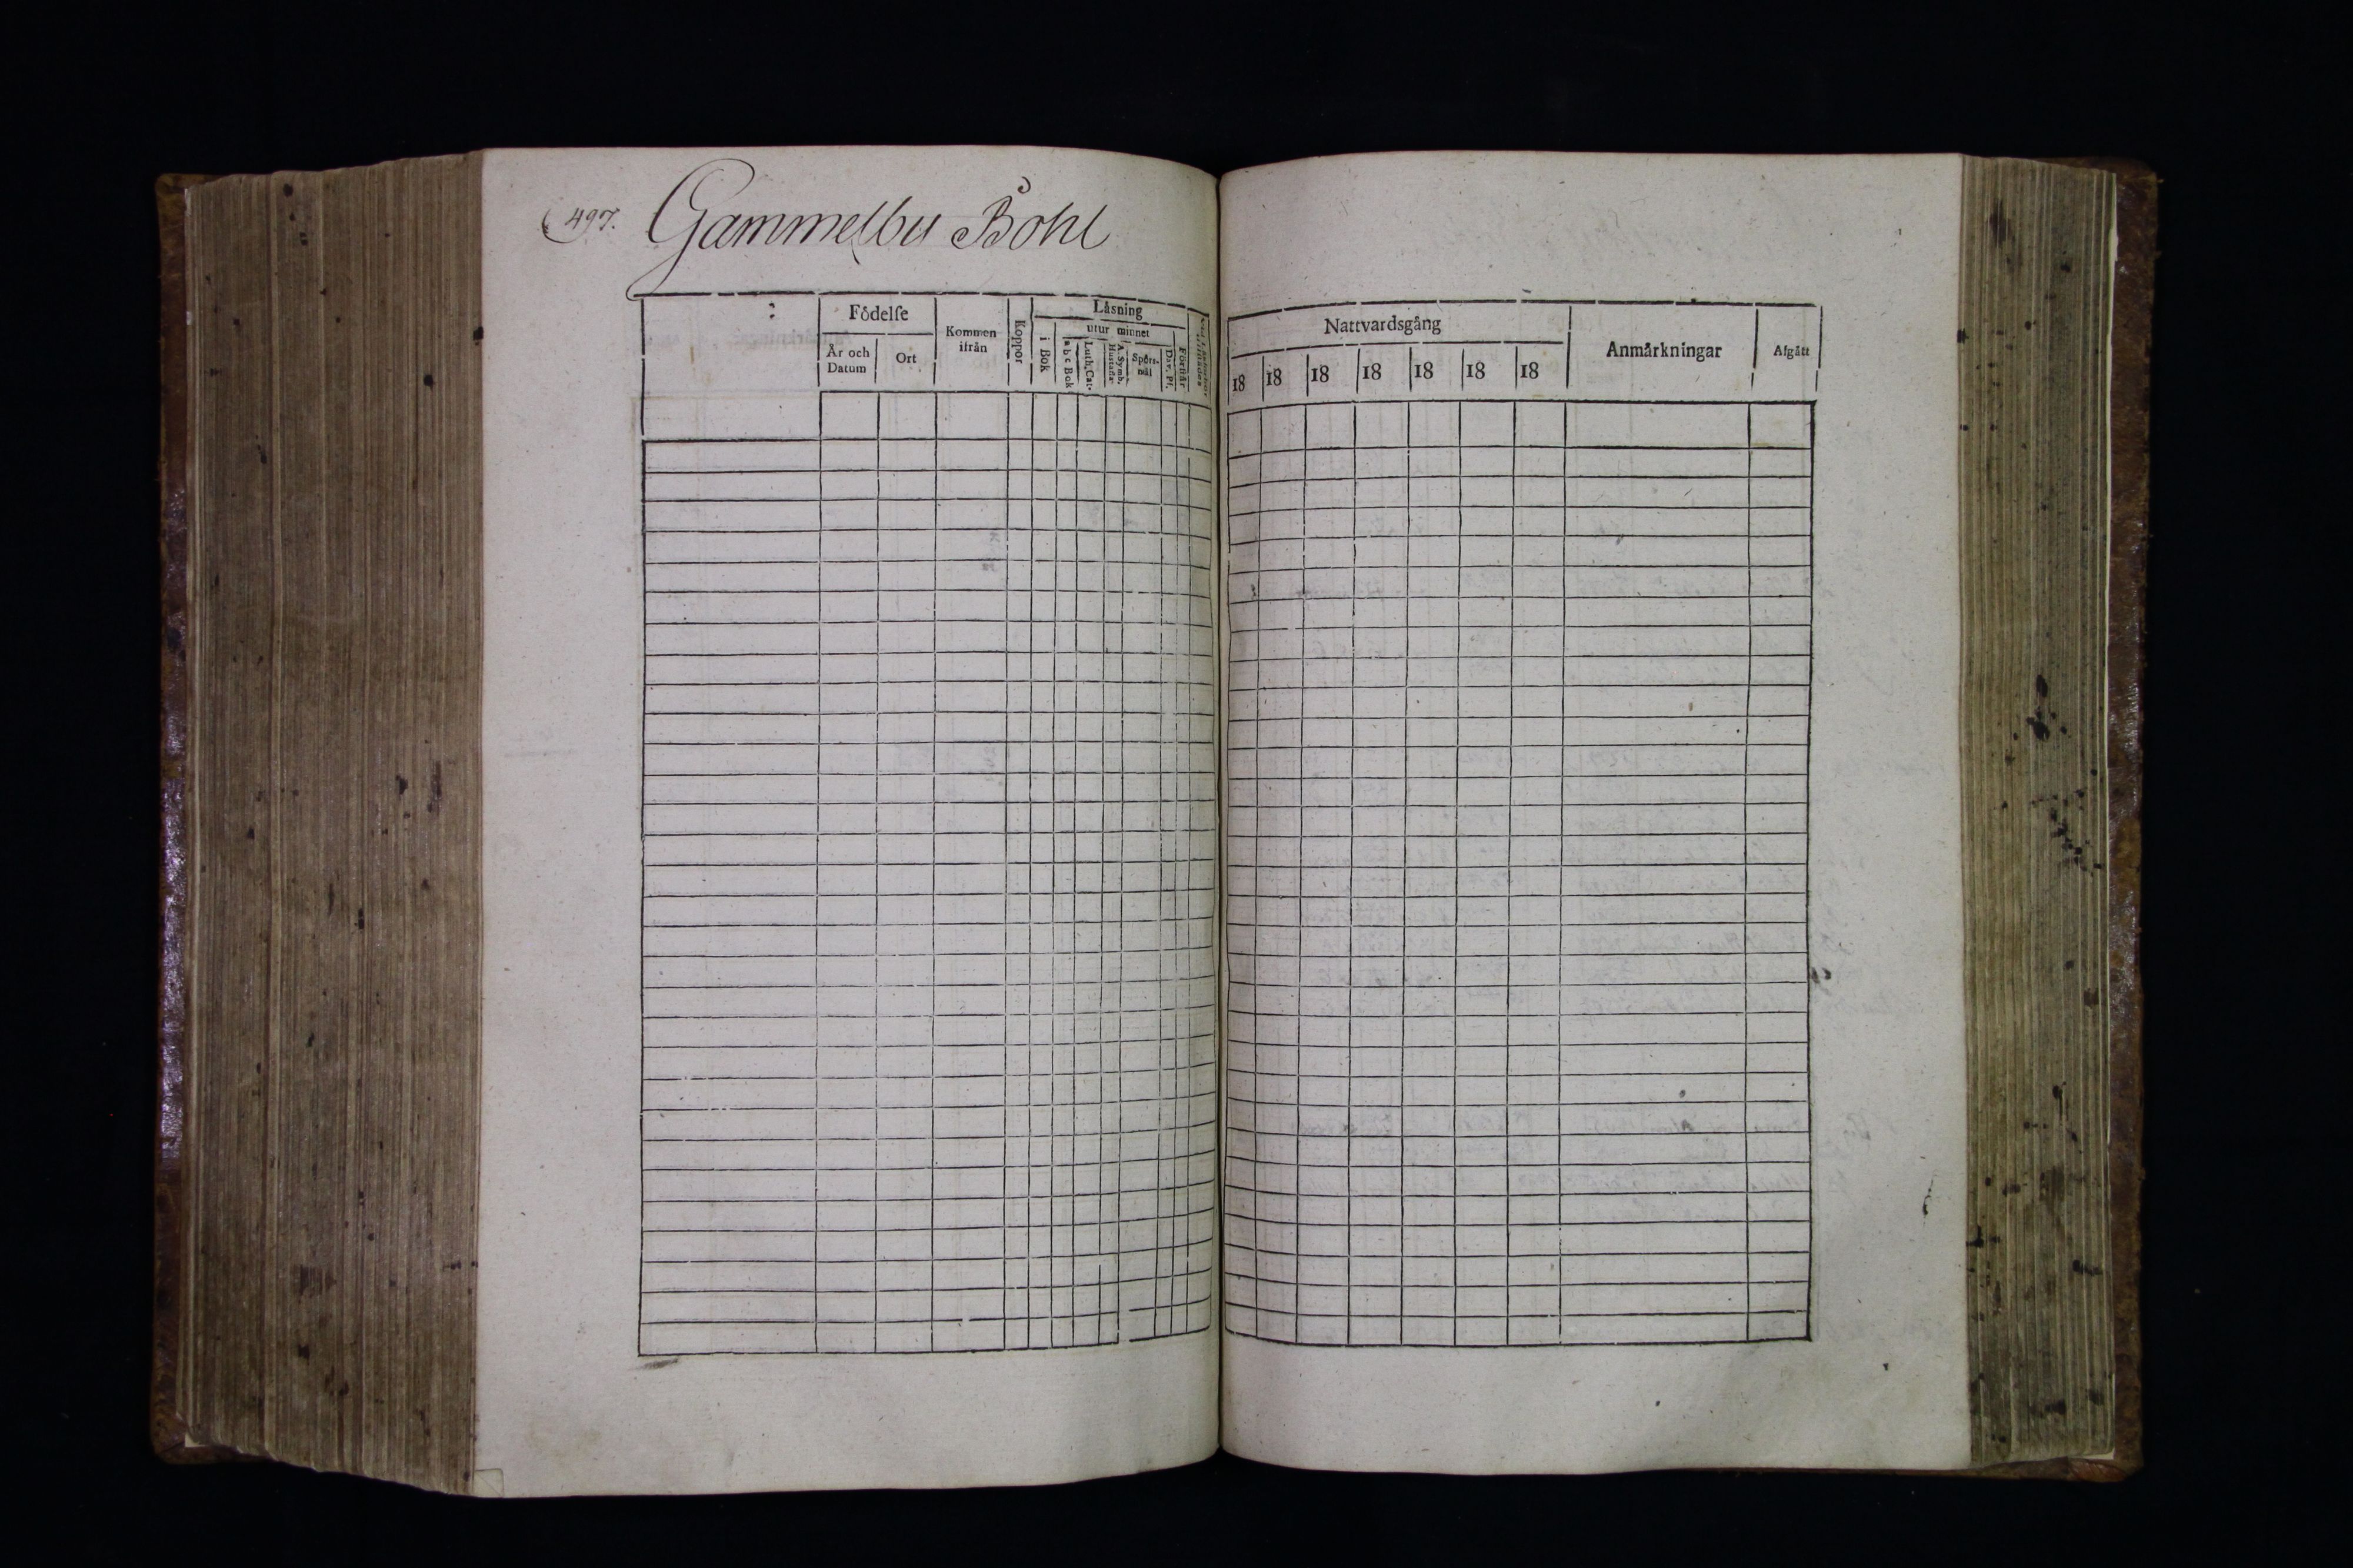 497. Gammelby Bohl
Födelse
År och Datum
Ort
Kommen ifrån
Koppor
Läsning
i Bok
utur minnet
a b c Bok
Luth. Cat.
A. Symb. Hustafla
Spörs-mål
Dav. Ps.
Förstår
Nattvardsgång
18 18 18 18 18 18 18
Anmärkningar
Afgått